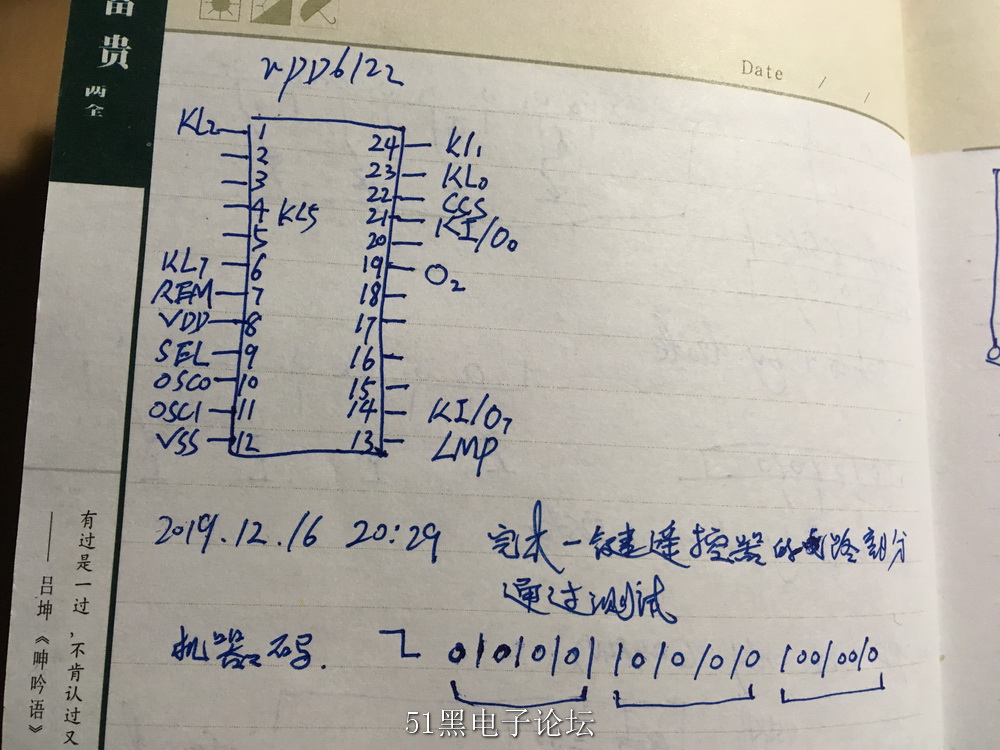 富贵
两全
Date / /
υpD6122
KL2 1 24 KI1
2 23 KL0
3 22 CCS
4 KL5 21 KI/O0
5 20
KL7 6 19 O2
REM 7 18
VDD 8 17
SEL 9 16
OSCO 10 15
OSCI 11 14 KI/O7
VSS 12 13 LMP
2019.12.16 20:29 完成一键遥控器的电路部分
通过测试
机器码.
01010101 10101010 1001010
有过是一过,不肯认过又
——吕坤《呻吟语》
51黑电子论坛